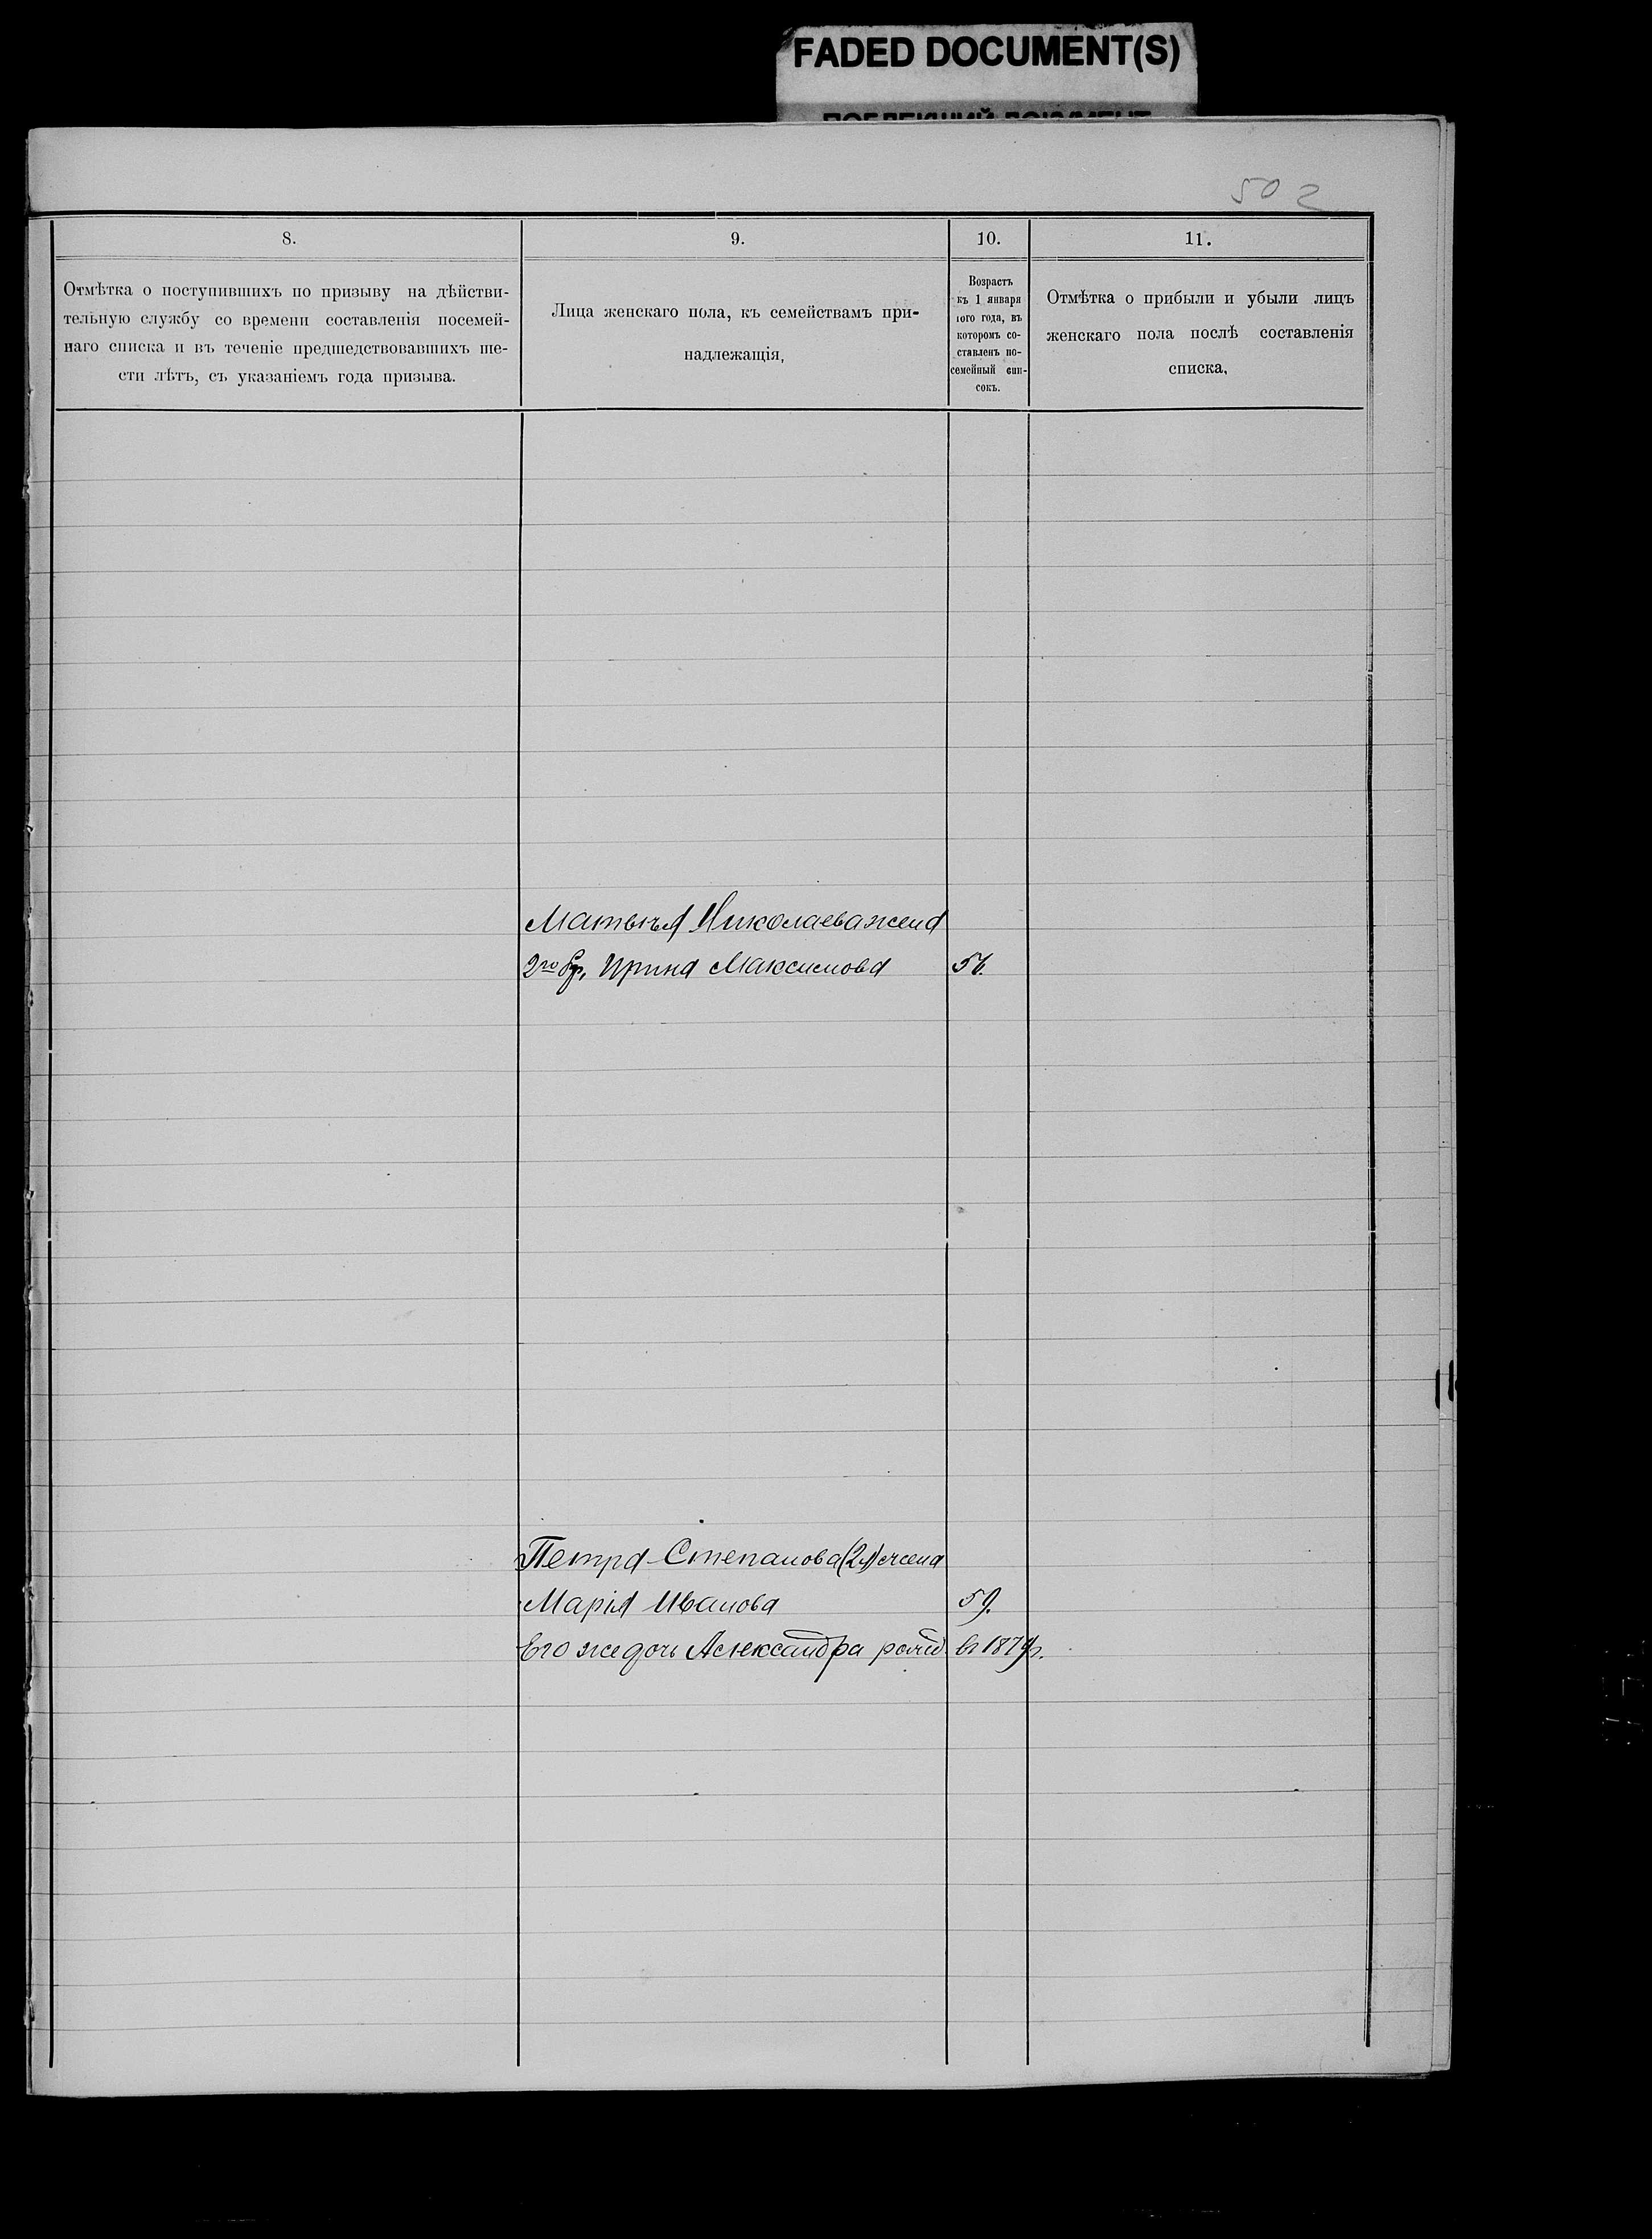 FADED DOCUMENT(S)
ПОБЛЕКШИЙ ДОКУМЕНТ
502
8.
9.
10.
11.
Отмѣтка о поступившихъ по призыву на дѣйстви-
тельную службу со времени составленія посемей-
наго списка и въ теченіе предшедствовавшихъ ше-
сти лѣтъ, съ указаніемъ года призыва.
Лица женскаго пола, къ семействамъ при-
надлежащія,
Возрастъ
къ 1 января
того года, въ
которомъ со-
ставленъ по-
семейный спи-
сокъ.
Отмѣтка о прибыли и убыли лицъ
женскаго пола послѣ составленія
списка,
Николаева жена
2го бр, Ирина Максимова 56.
Петра Степанова (2я) жена
Марія Иванова 59.
Его же дочь Александра рожд. въ 1879г.